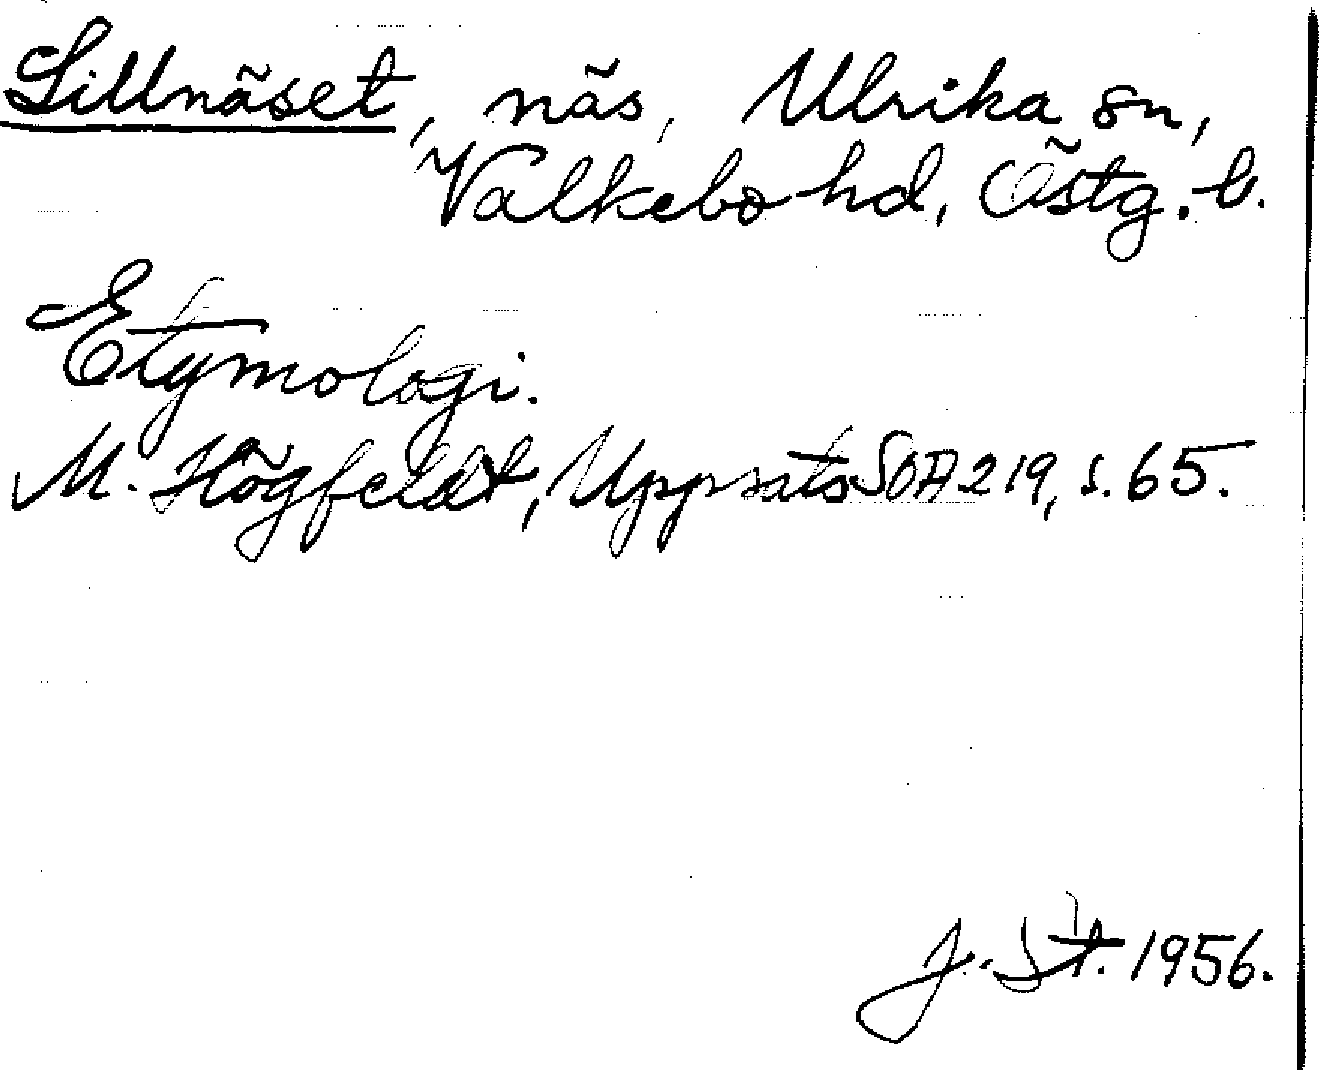 Lillnäset, näs, Ulrika sn,
Valkebo hd, Östg. l.
Etymologi.
M. Högfeldt, Uppsats SOA 219, s. 65.
J. St. 1956.